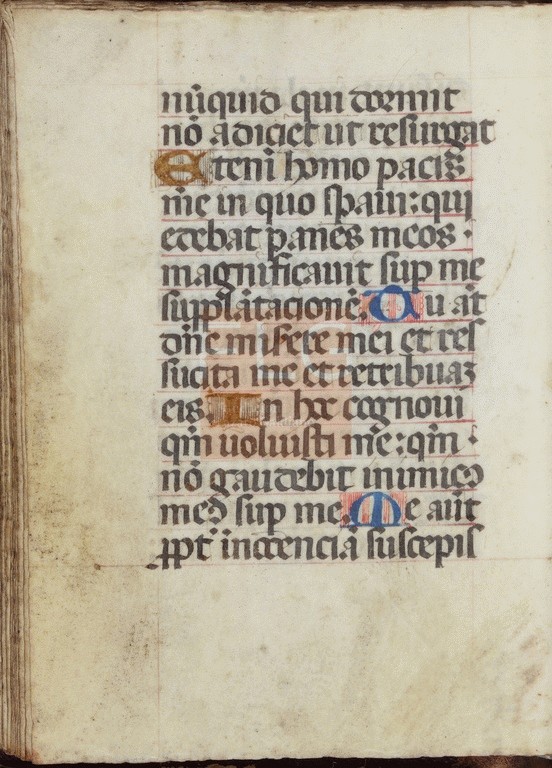 nūquid qui dormit
nō adiciet ut resurgat
Etenī homo pacis
me in quo speraui: qui
edebat panes meos ·
magnificauit sup me
supplātacionē. Tu aūt
dn̄e miserere mei et res
sucita me et retribuā
eis. In hoc cognoui
qm̄ uoluisti me: qm̄ ·
nō gaudebit inimicꝰ
meꝰ sup me. Me aūt
ꝓpt̄ inocenciā suscepis